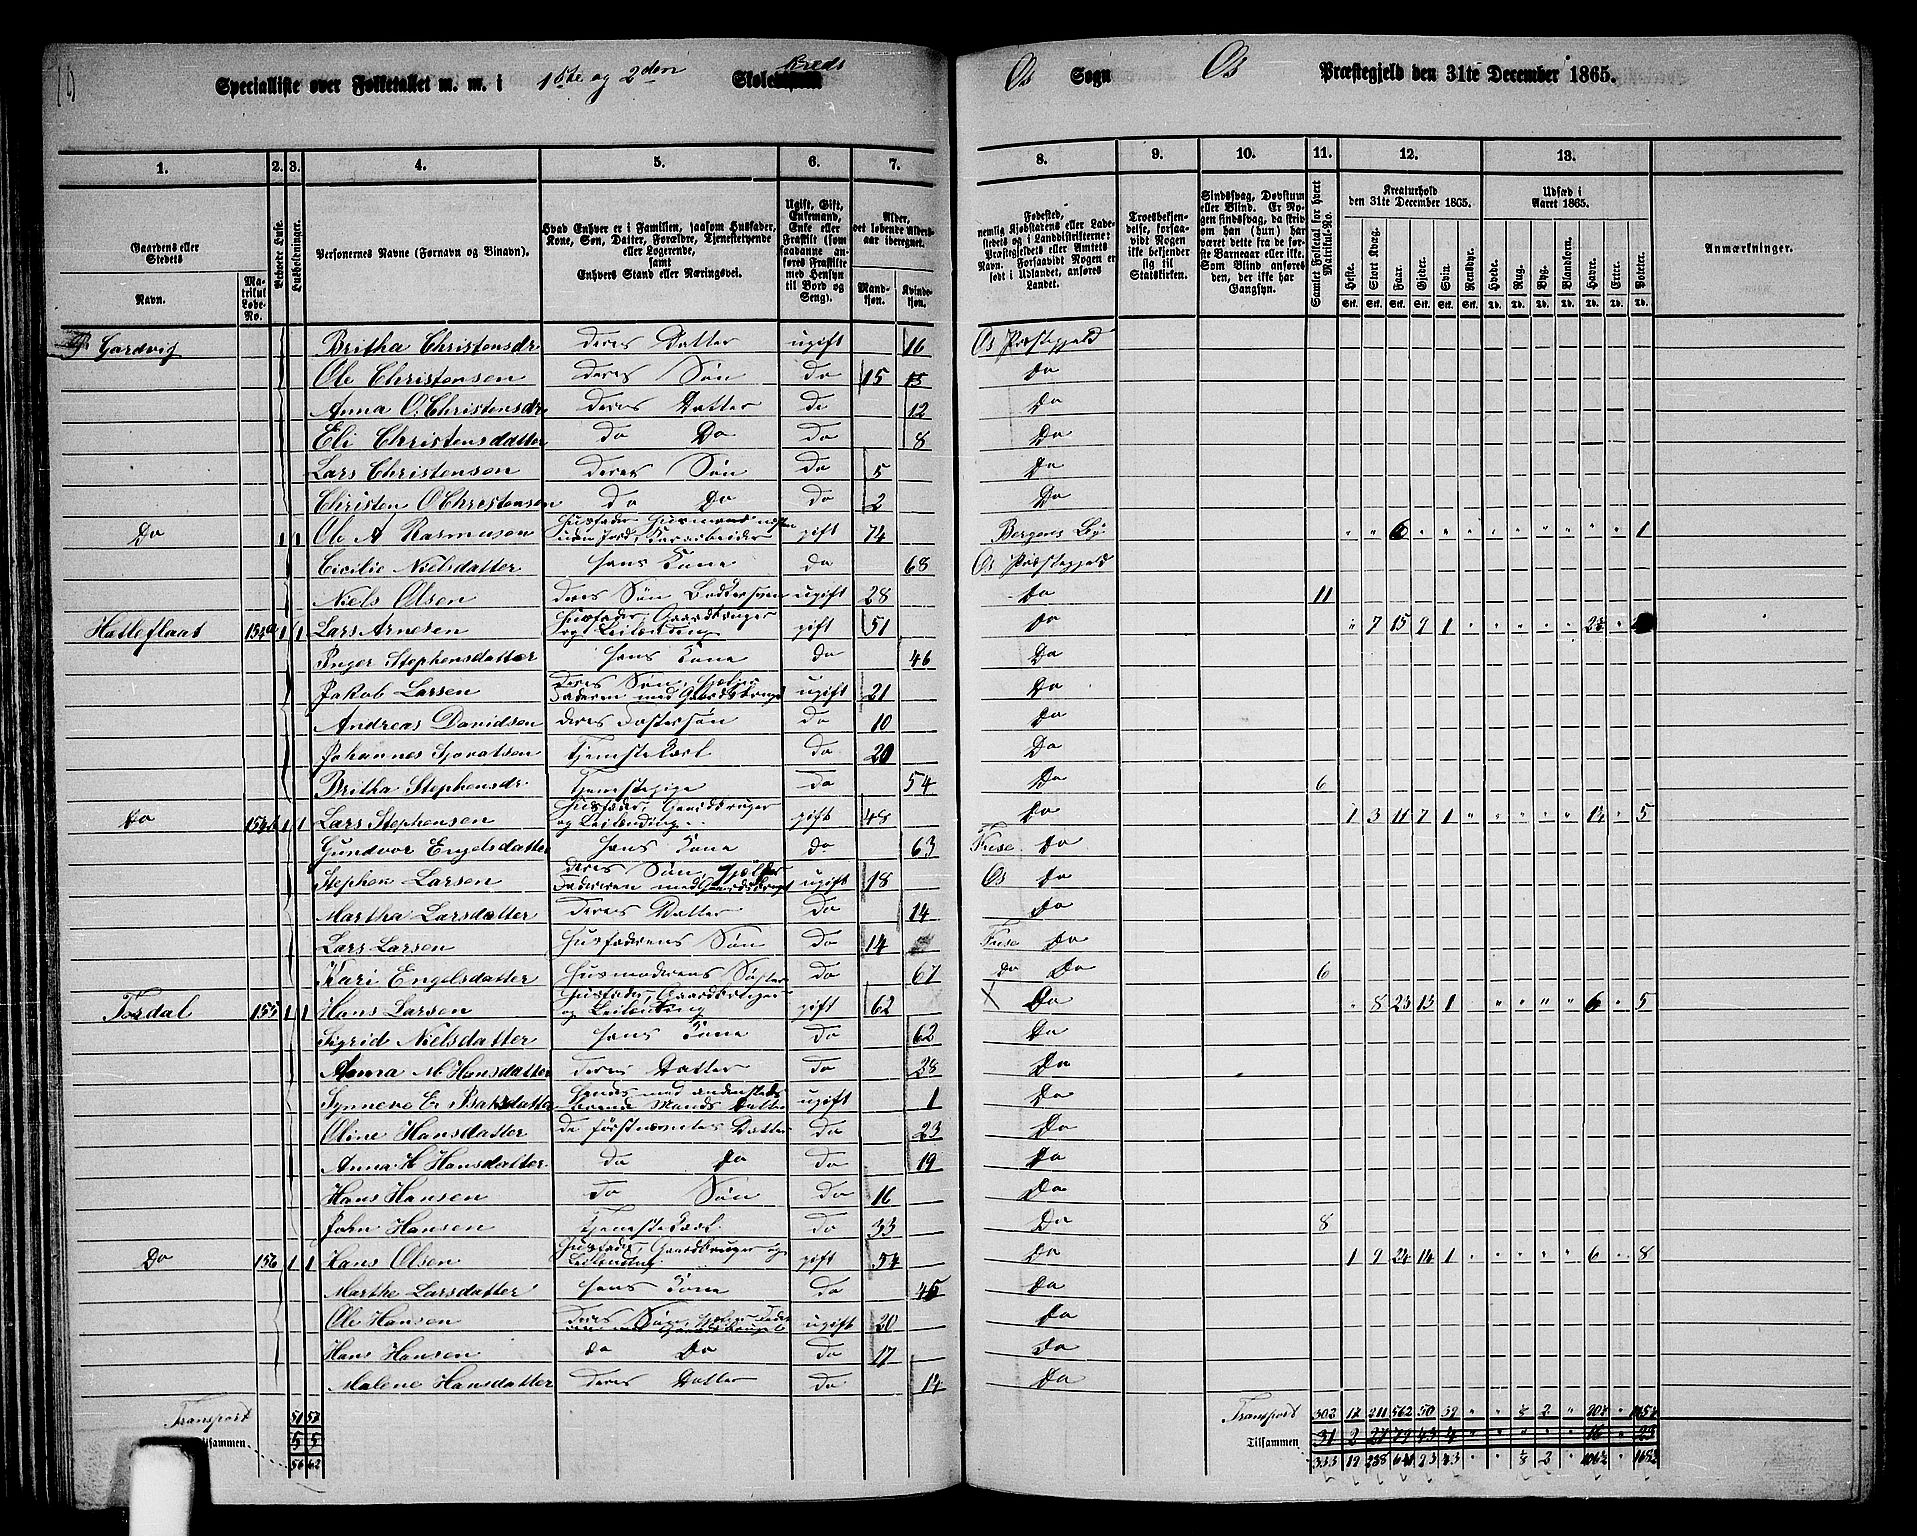 Specialliste over Folketallet m. m. i 1ste og 2den Skolekreds
Os Sogn Os Præstegjeld den 31te December 1865.
1. 2. 3. 4. 5. 6. 7. 8. 9. 10. 11. 12. 13.
Gaardens eller Stedets Navn.
Matrikul Løbe-No.
Beboede Huse.
Husholdninger.
Personernes Navne (Fornavn og Binavn).
Hvad Enhver er i Familien, saasom Husfader, Kone, Søn, Datter, Forældre, Tjenestetyende eller Logerende, samt Enhvers Stand eller Næringsvei.
Ugift, Gift, Enkemand, Enke eller Fraskilt (som saadanne anføres Fraskilte med Hensyn til Bord og Seng).
Alder, det løbende Alders-aar iberegnet.
Mandkjøn. Kvindekjøn.
Fødested, nemlig Kjøbstadens eller Ladestedets og i Landdistrikterne: Præstegjeldets eller Amtets Navn. Forsaavidt Nogen er født i Udlandet, anføres Landet.
Troesbekjendelse, forsaavidt Nogen ikke bekjender sig til Statskirken.
Sindssvag, Døvstum eller Blind. Er Nogen sindssvag, da skrives om han (hun) har været dette fra de første Barneaar eller ikke. Som Blind anføres den, der ikke har Gangsyn.
Samlet Folketal for hvert Matrikul-No.
Kreaturhold den 31te December 1865.
Heste. Stort Kvæg. Faar. Gjeder. Svin. Rensdyr.
Udsæd i Aaret 1865.
Hvede. Rug. Byg. Blandkorn. Havre. Erter. Poteter.
Anmærkninger.
Gardvig Britha Christensdr. deres Datter ugift 16 Os Præstegjeld
Ole Christensen deres Søn do 15 Do
Anna O. Christensdr. deres Datter do 12 Do
Eli Christensdatter do Do do 8 Do
Lars Christensen deres Søn do 5 Do
Christen O Christensen do Do do 2 Do
Do 1 1 Ole A Rasmusen gift 74 Bergens By " " 6 " " " " " " " " " 1
Cicilie Nielsdatter hans Kone do 68 Os Præstegjeld
Niels Olsen deres Søn ugift 28 Do 11
Hatleflaat 154a 1 1 Lars Arnesen Husfader, Gaardbruger og Leilænding gift 51 Do " 7 15 9 1 " " " " "
Inger Stephensdatter hans Kone do 46 Do
Jakob Larsen deres Søn, hjælper Faderen med Gaardsbruget ugift 21 Do
Andreas Davidsen deres Søstersøn do 10 Do
Johannes Sjovatsen Tjenestekarl do 20 Do
Britha Stephensdr. Tjenestepige do 54 Do 6
Do 154b 1 1 Lars Stephensen Husfader, Gaardbruger og Leilænding gift 48 Do 1 3 11 7 1 " " " " " " 5
Gundvor Engelsdatter hans Kone do 63 Fuse Do
Stephen Larsen deres Søn, hjælper Faderen med Gaardsbruget ugift 18 Os Do
Martha Larsdatter deres Datter do 14 Do
Lars Larsen Husfaderens Søn do 14 Fuse Do
Kari Engelsdatter Husmoderens Søster do 67 do Do 6
Tordal 155 1 1 Hans Larsen Husfader, Gaardbruger og Leilænding gift 62 Do " 8 23 13 1 " " " " " 6 " 5
Sigrid Nielsdatter hans Kone do 62 Do
Anna M Hansdatter deres Datter do 28 Do
Synneve ugift 1 Do
Oline Hansdatter de førstnævntes Datter do 23 Do
Anna H Hansdatter do Do do 19 Do
Hans Hansen do Søn do 16 Do
John Hansen Tjenestekarl do 33 Do 8
Do 156 1 1 Hans Olsen Husfader, Gaardbruger og Leilænding gift 54 Do 1 9 24 14 1 " " " " " 6 " 8
Marthe Larsdatter hans Kone do 45 Do
Ole Hansen deres Søn, ugift 20 Do
Hans Hansen do Do do 17 Do
Malene Hansdatter deres Datter do 14 Do
Transport 51 57 Transport 302 17 211 562 50 39
Tilsammen 5 5 Tilsammen 31 2 27 79 43 4
56 62 333 19 238 641 93 43